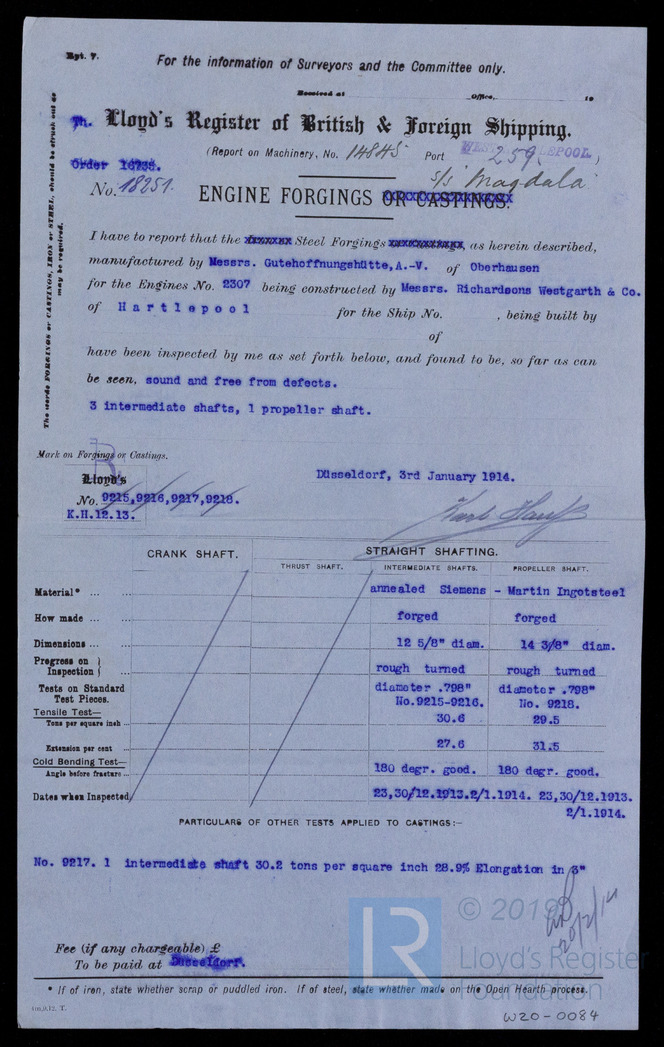 Rpt. 7.
For the information of Surveyors and the Committee only.
Received at Office, 19
Th. Lloyd's Register of British & Foreign Shipping.
(Report on Machinery, No. 14845 Port WEST HARTLEPOOL 259. )
Order 16738.
s/s Magdala
No. 18251.
ENGINE FORGINGS OR CASTINGS.
The words FORGINGS or CASTINGS, IRON or STEEL, should be struck out as may be required.
I have to report that the Steel Forgings, as herein described,
manufactured by Messrs. Gutehoffnungshütte,A.-V. of Oberhausen
for the Engines No. 2307 being constructed by Messrs. Richardsons Westgarth & Co.
of Hartlepool for the Ship No. , being built by
of
have been inspected by me as set forth below, and found to be, so far as can
be seen, sound and free from defects.
3 intermediate shafts, 1 propeller shaft.
Mark on Forgings or Castings.
R
Lloyd's
Düsseldorf, 3rd January 1914.
No. 9215,9216,9217,9218.
K.H.12.13.
CRANK SHAFT. STRAIGHT SHAFTING.
THRUST SHAFT. INTERMEDIATE SHAFTS. PROPELLER SHAFT.
Material* ... ... annealed Siemens - Martin Ingotsteel
How made ... ... forged forged
Dimensions ... ... 12 5/8" diam. 14 3/8" diam.
Progress on Inspection } ... rough turned rough turned
Tests on Standard Test Pieces. diameter .798" No.9215-9216. diameter .798" No. 9218.
Tensile Test—
Tons per square inch ... 30.6 29.5
Extension per cent ... 27.6 31.5
Cold Bending Test—
Angle before fracture ... 180 degr. good. 180 degr. good.
Dates when Inspected 23,30/12.1913.2/1.1914. 23,30/12.1913.
2/1.1914.
PARTICULARS OF OTHER TESTS APPLIED TO CASTINGS:—
No. 9217. 1 intermediate shaft 30.2 tons per square inch 28.9% Elongation in 3"
20/2/14
© 2019
LR
Lloyd's Register
Foundation
Fee (if any chargeable) £
To be paid at Düsseldorf.
* If of iron, state whether scrap or puddled iron. If of steel, state whether made on the Open Hearth process.
W20-0084